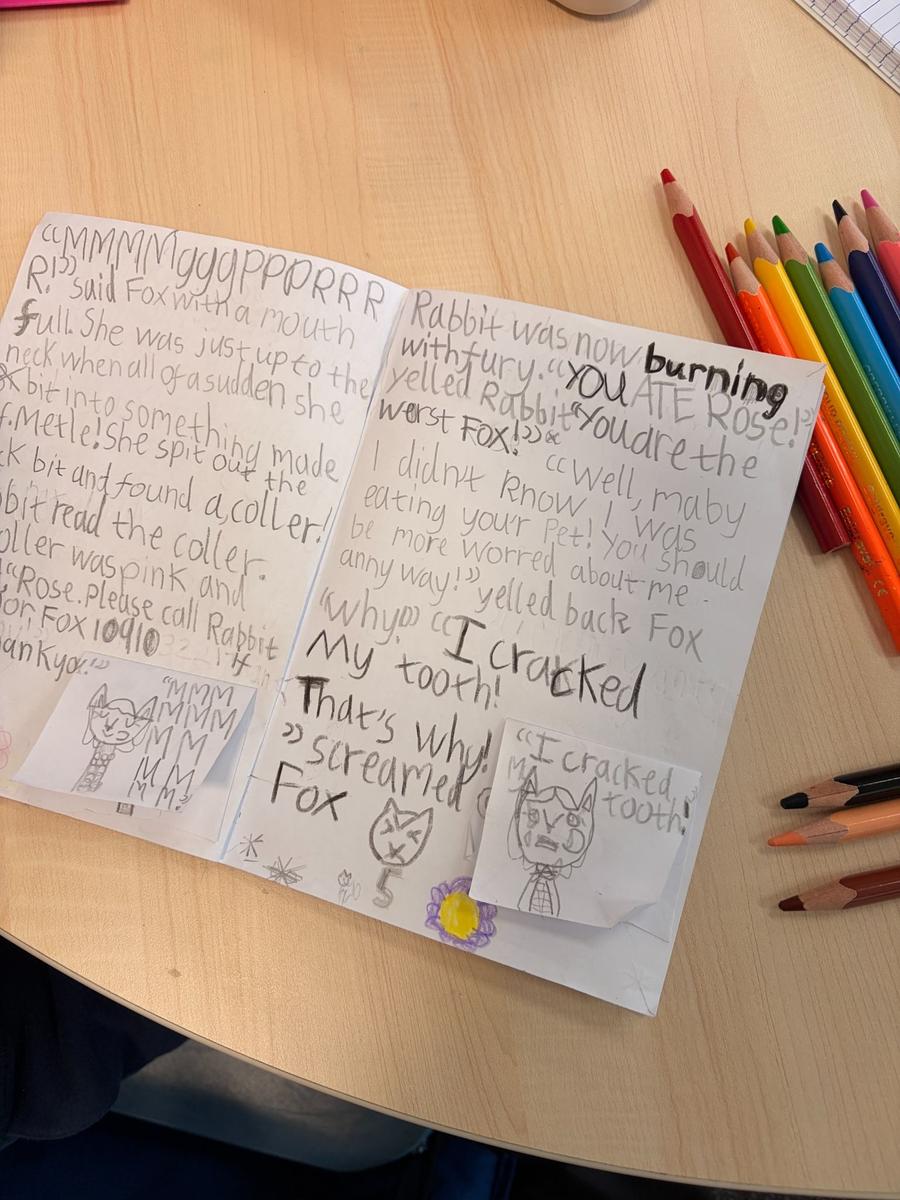 “MMMMMgggPPPPRRR
R!” said Fox with a mouth
full. She was just up to the
neck when all of a sudden she
bit into something made
f. Metle! She spit out the
ck bit and found a coller!
bbit read the coller.
oller was pink and
“Rose. Please call Rabbit
or Fox 10910 if
ankyou.”
“MMM
MMMM
M M
M M
M!”
Rabbit was now burning
with fury. “YOU ATE Rose!”
yelled Rabbit “You are the
werst FOX!” “Well, maby
I didn't know I was
eating your Pet! You should
be more worred about me
anny way!” yelled back Fox
“Why” “I cracked
My tooth!
That's why!
” screamed
Fox
“I cracked
My tooth!”
5